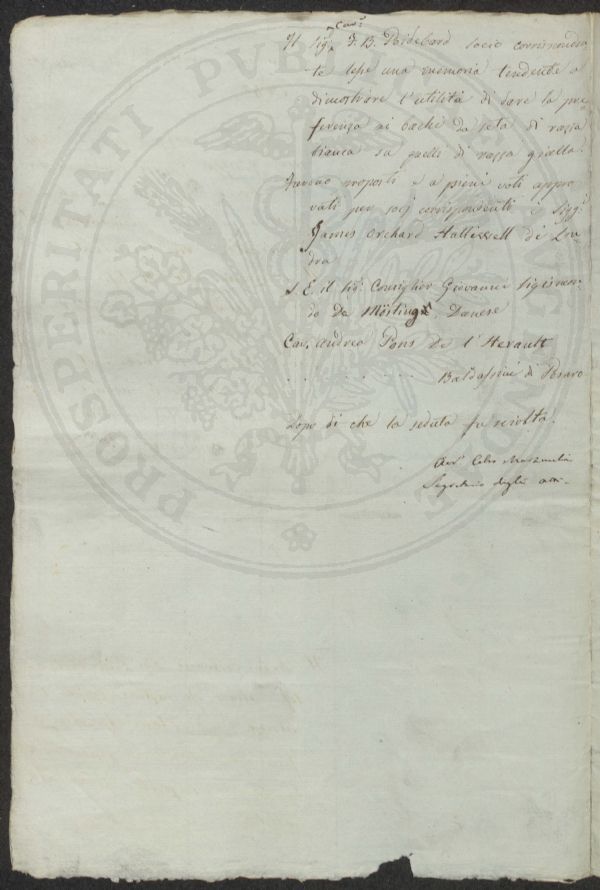 Cav.e
Il Sig.r F. B. Ridebard socio corrisponden
te lesse una memoria tendente a
dimostrare l'utilità di dare la pre
ferenza ai bachi da seta di razza
bianca su quelli di razza gialla.
Furono proposti e a pieni voti appro
vati per socj corrispondenti i Sigg.i
James Orchard Halliwell di Lon
dra
S. E. il Sig. Consiglier Giovanni Sigismon
do de Möstingr, Danese
Cav. Andrea Pons de l'Herault
. . . . . . . . Baldassini di Pesaro
Dopo di che la seduta fu sciolta.
Avv.
Segretario degli atti
PROSPERITATI PUBLICAE AUGENDAE